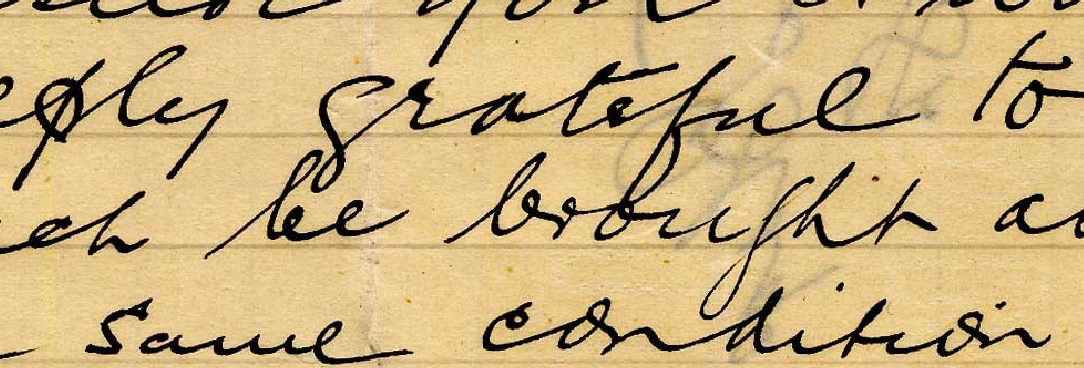 eply grateful to
ch be brought
same condition